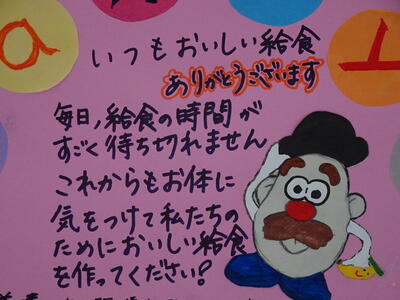 a
いつもおいしい給食
ありがとうございます
毎日,給食の時間が
すごく待ち切れません
これからもお体に
気をつけて私たちの
ためにおいしい給食
を作ってください?